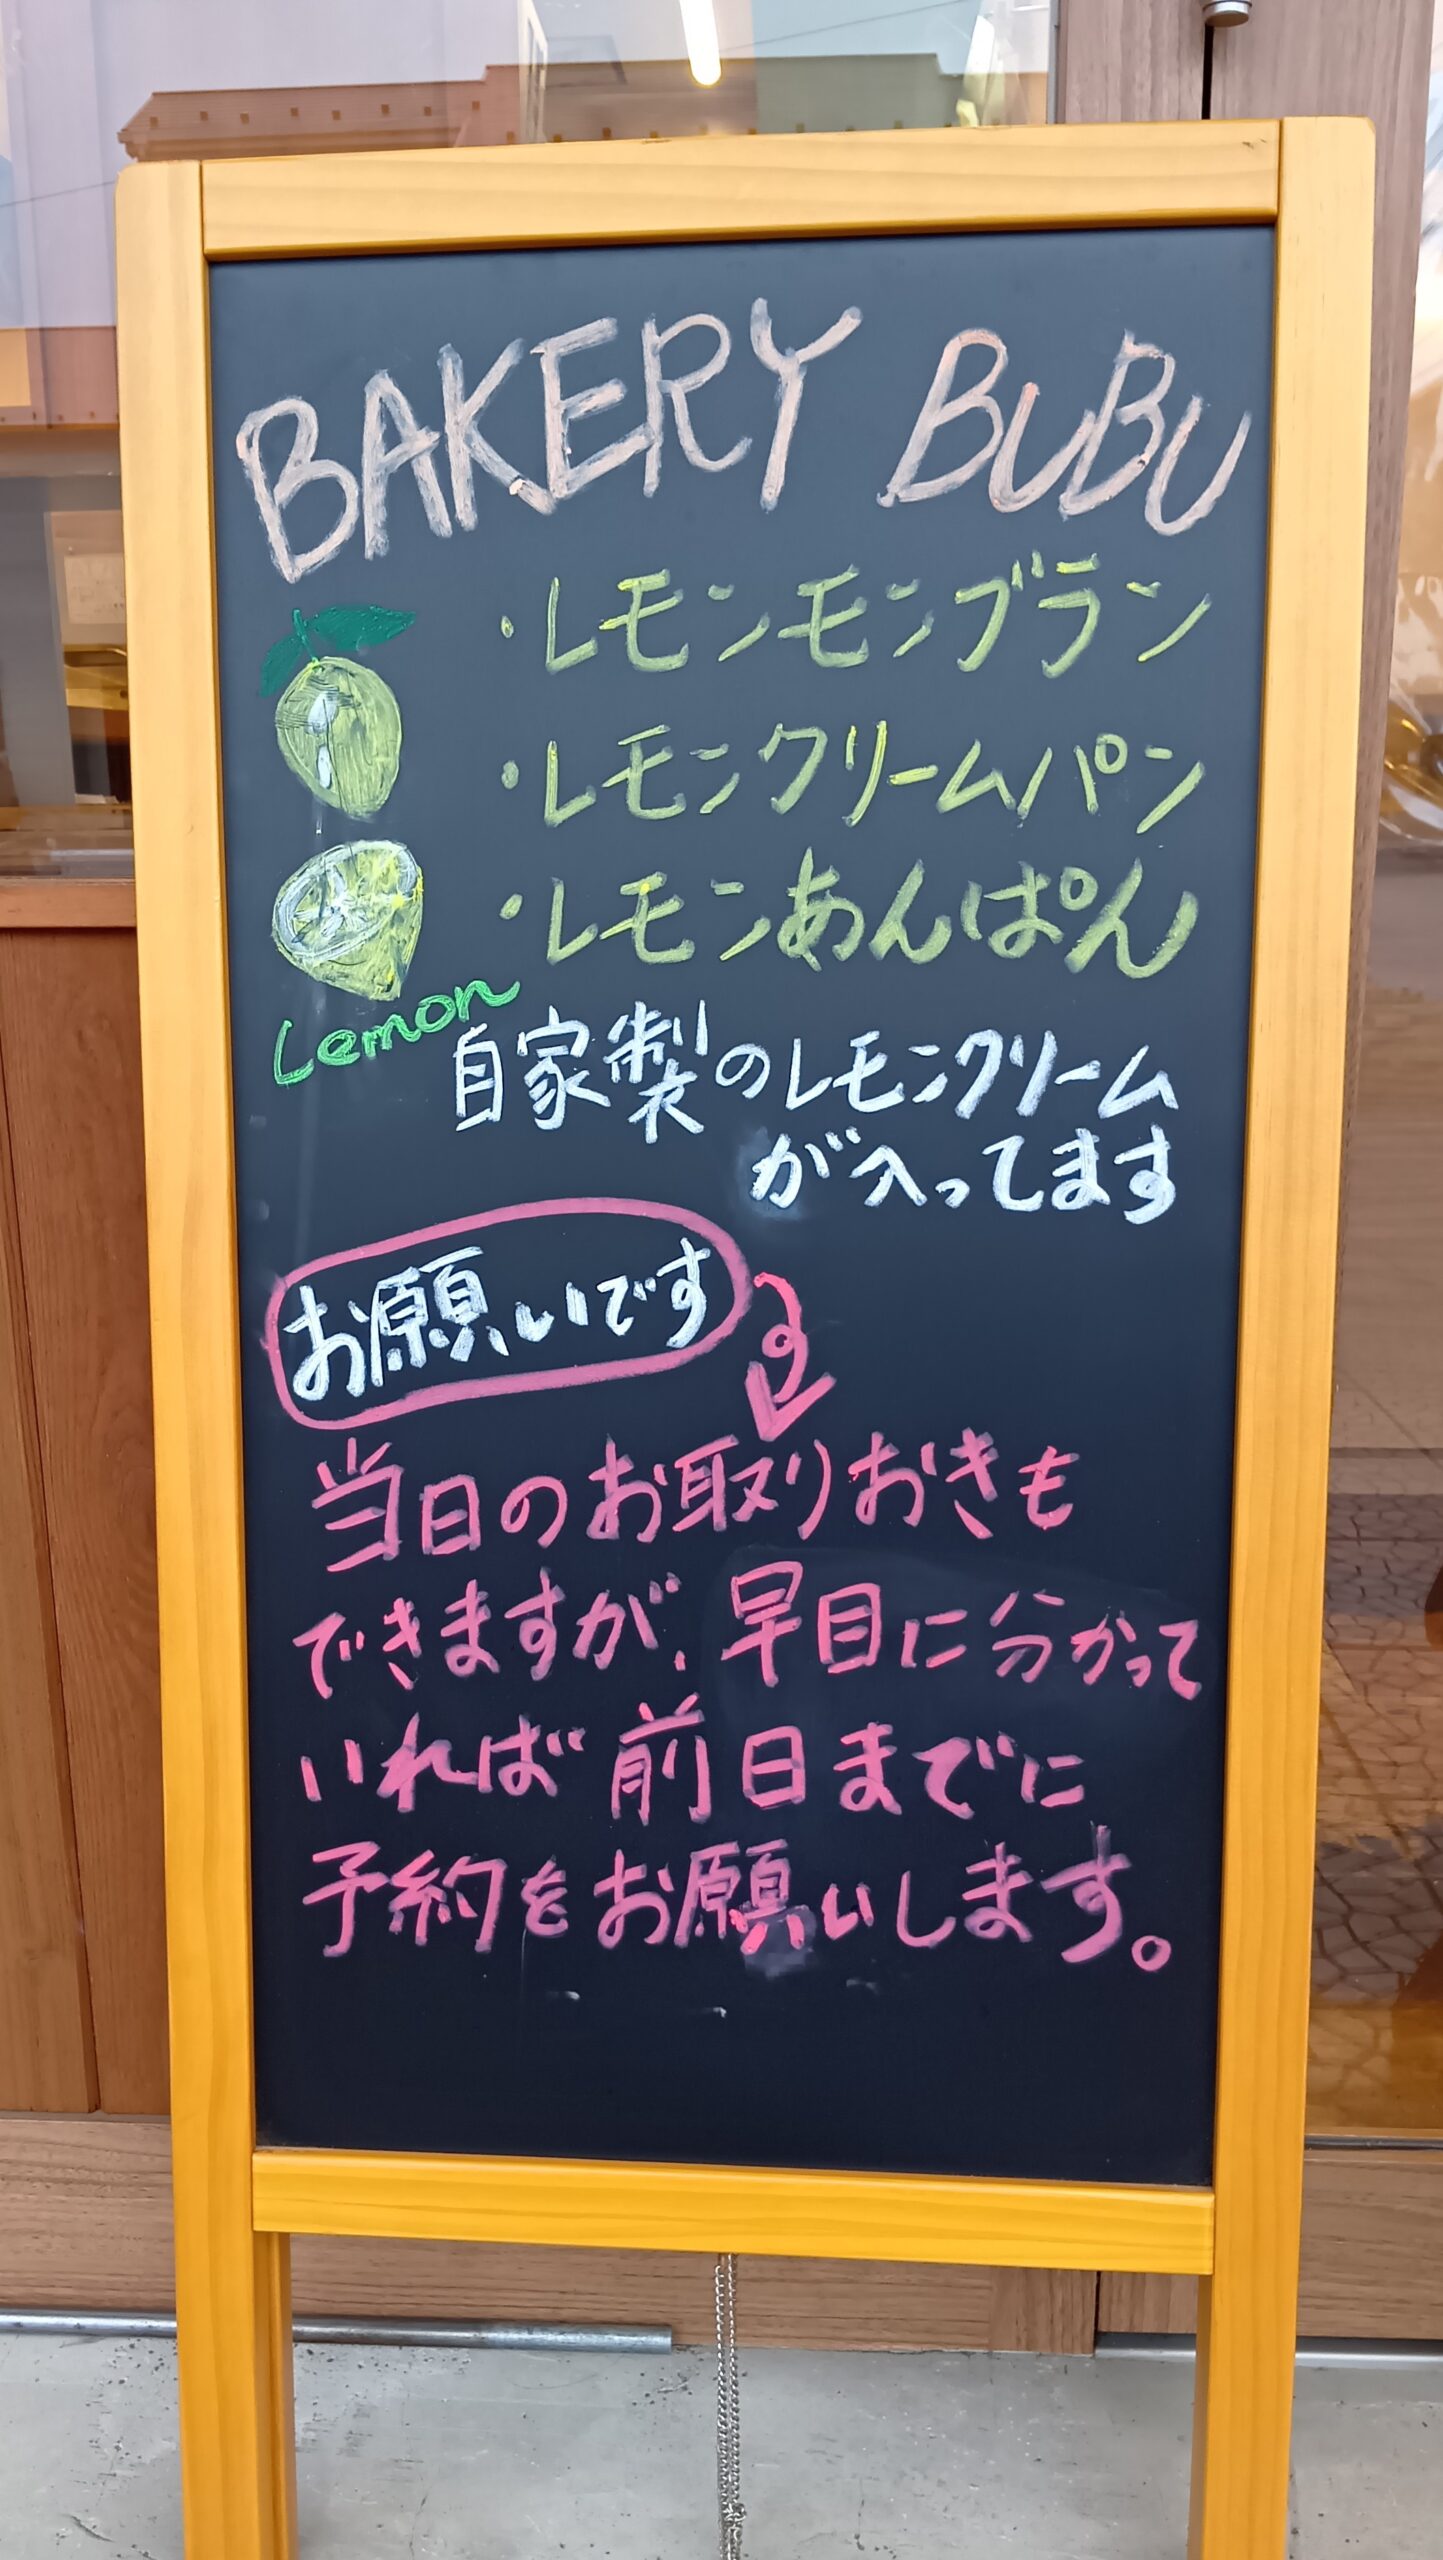 BAKERY BUBU
・レモンモンブラン
・レモンクリームパン
・レモンあんぱん
Lemon
自家製のレモンクリーム
が入ってます
お願いです
当日のお取りおきも
できますが、早目に分かって
いれば前日までに
予約をお願いします。